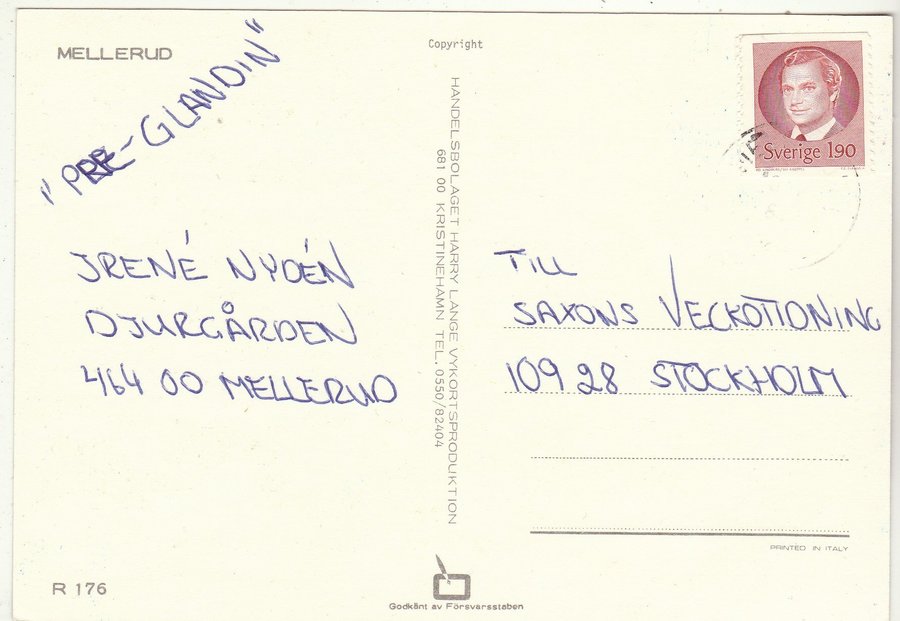 MELLERUD
"PRE-GLANDIN"
JRENÉ NYDÉN
DJURGÅRDEN
464 00 MELLERUD
R 176
Copyright
HANDELSBOLAGET HARRY LANGE VYKORTSPRODUKTION
681 00 KRISTINEHAMN TEL. 0550/82404
Godkänt av Försvarsstaben
Sverige 190
TILL
SAXONS VECKOTIDNING
109 28 STOCKHOLM
PRINTED IN ITALY